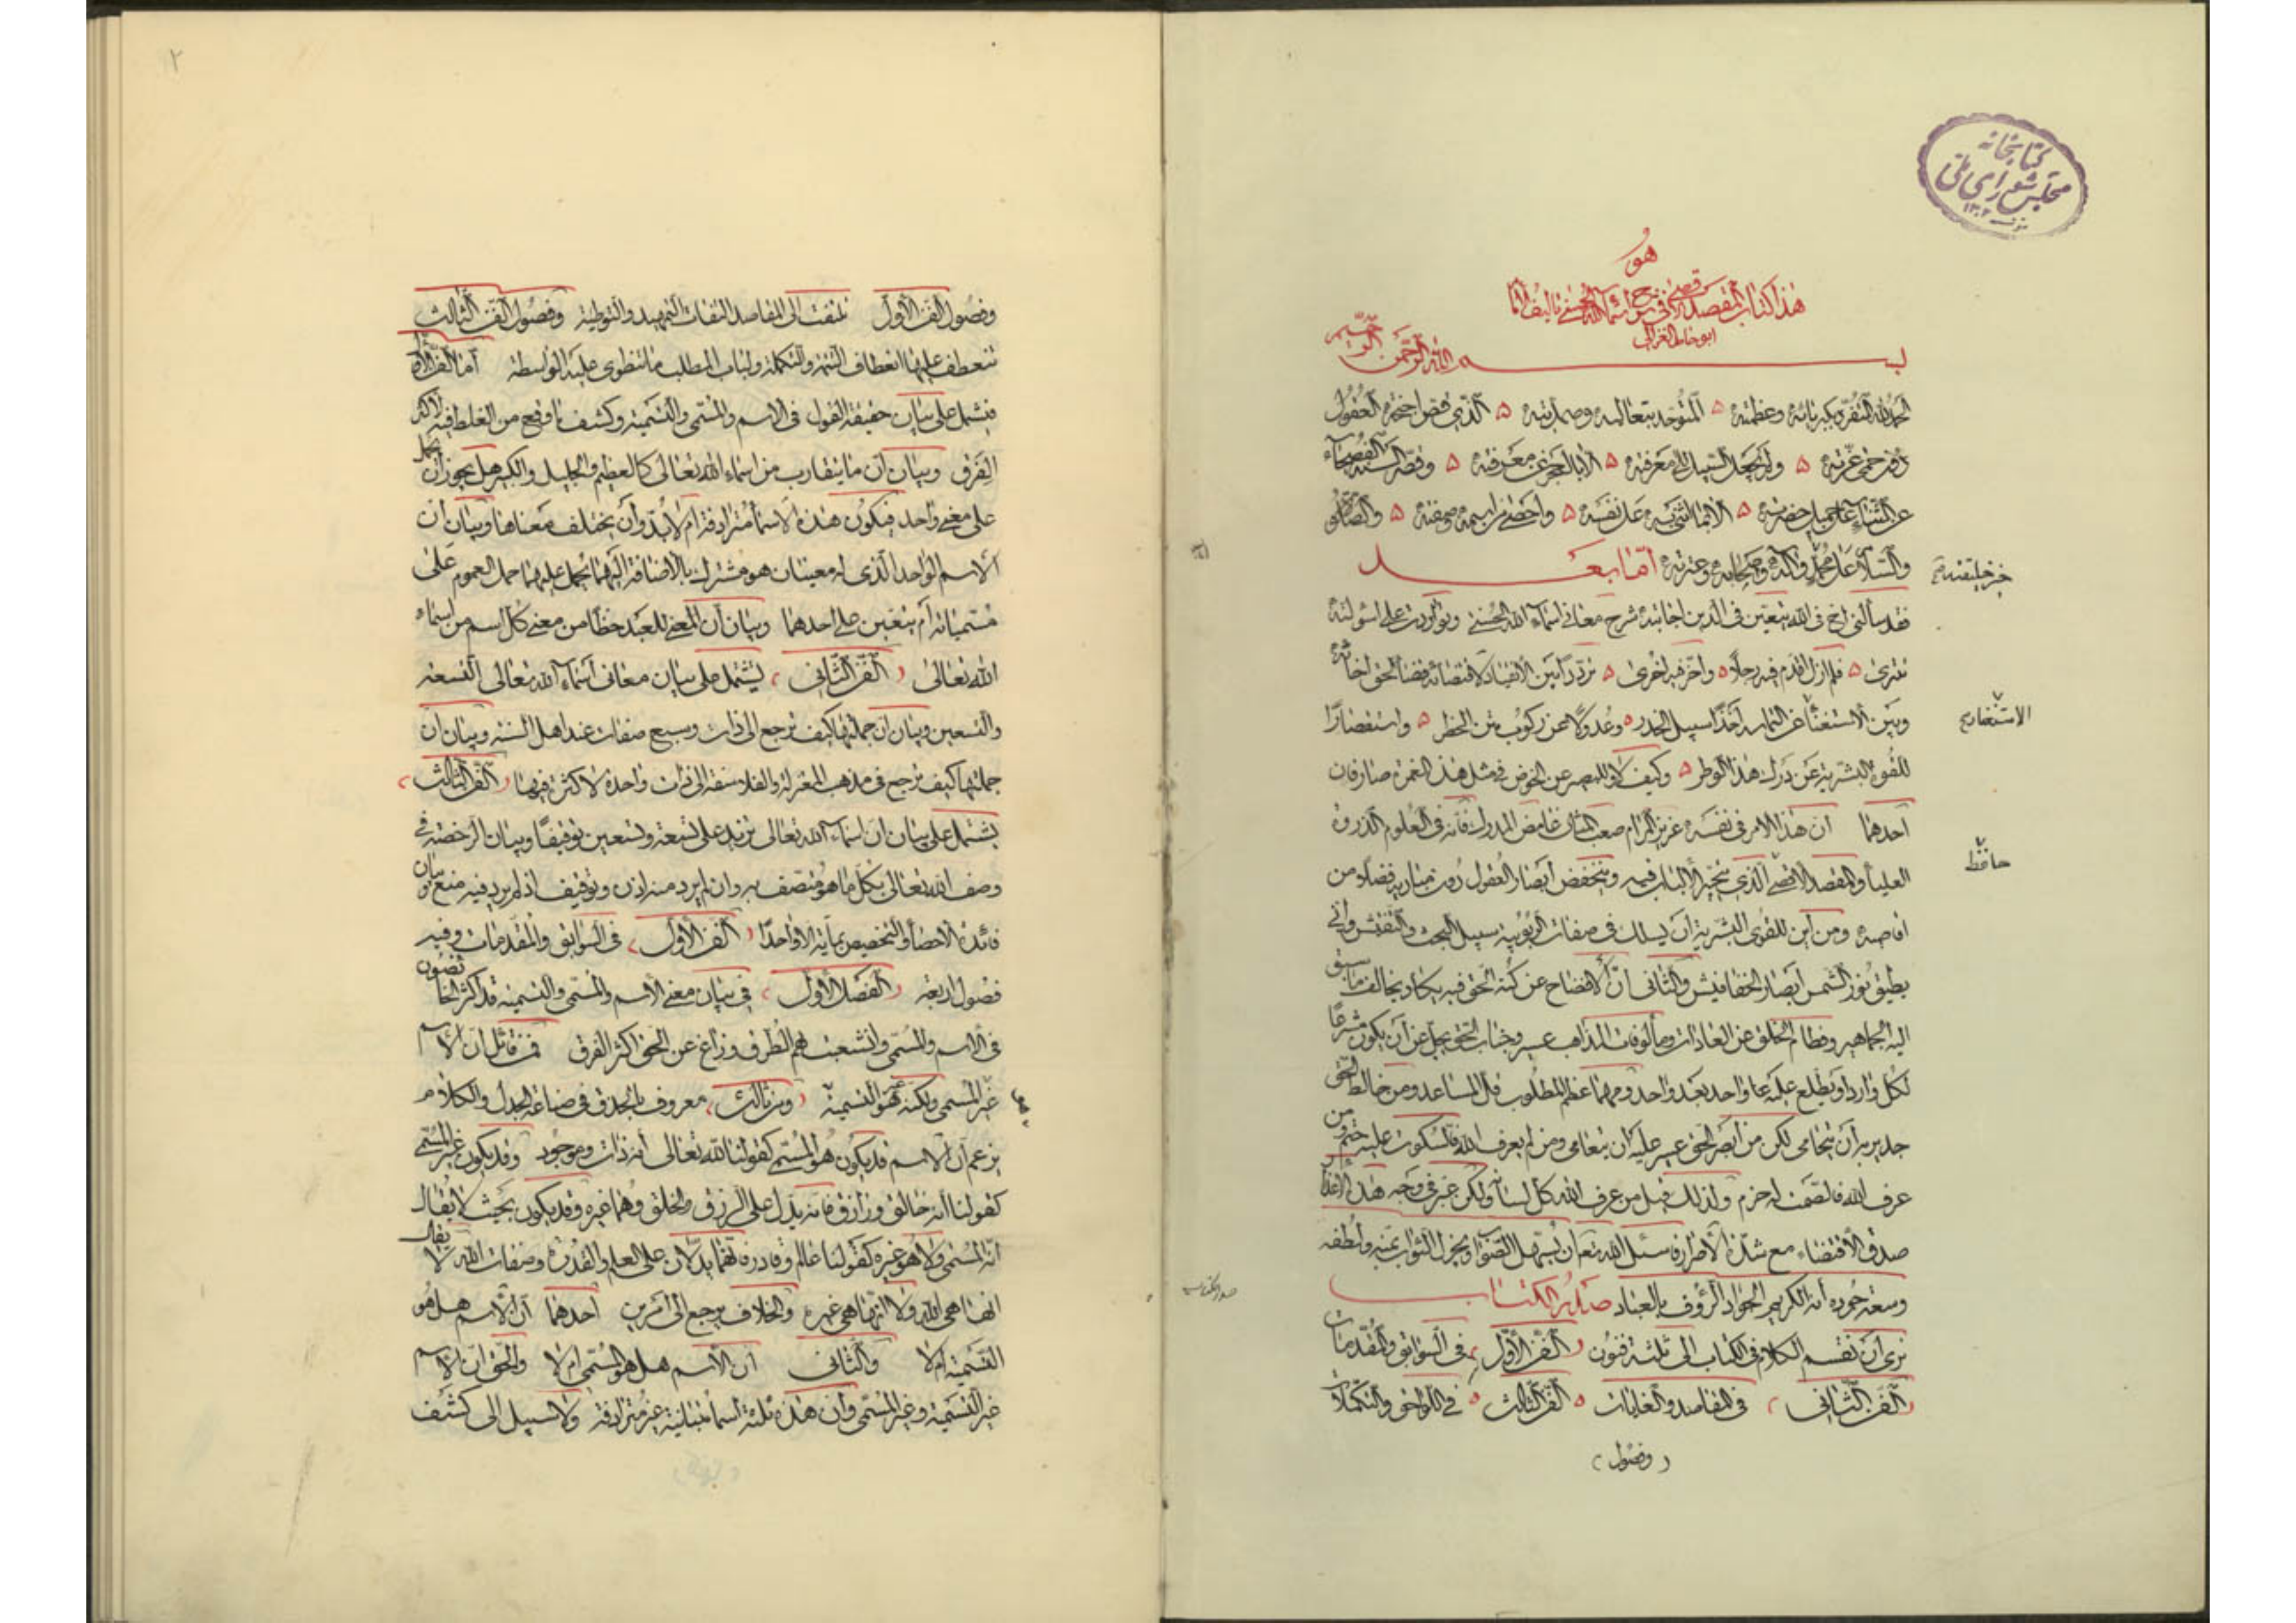 كتابخانه
مجلس شورای ملی
۱۳۰۲
هو
هذا كتاب المقصد الاقصى فى شرح اسماء الله الحسنى تأليف
ابو حامد الغزالى
بسم الله الرحمن الرحيم
الحمد لله المتفرد بكبريائه وعظمته المتوحد بتعاليه وصمديته الذى قص اجنحة العقول
دون حمى عزته ولم يجعل السبيل الى معرفته الا بالعجز عن معرفته وقصر السنة الفصحاء
عن الثناء على جميل حضرته الا بما اثنى به على نفسه واحصى من اسمه وصفته والصلوة
والسلام على محمد وآله وصحابه وعترته اما بعد
خير خليقته
فقد سألنى اخ فى الله يتعين فى الدين اجابته شرح معانى اسماء الله الحسنى وتواردت على اسولته
تترى فلم ازل اقدم فيه رجلا واؤخر فيه اخرى ترددا بين الانقياد لاقتضائه قضاء لحق اخائه
وبين الاستعفاء عن التماسه اخذا سبيل الحذر وعدولا عن ركوب متن الخطر واستقصارا
للقوة البشرية عن درك هذا الوطر وكيف لا وللبصير عن الخوض فى مثل هذه الغمرة صارفان
احدهما ان هذا الامر فى نفسه عزيز المرام صعب المنال غامض المدرك فانه فى العلوم الذروة
العليا والمقصد الاقصى الذى يتحير الالباب فيه وينخفض ابصار العقول دون مباديه فضلا من
اقاصيه ومن اين للقوى البشرية ان يسلك فى صفات الربوبية سبيل البحث والتفتيش وانى
يطيق نور الشمس ابصار الخفافيش والثانى ان الافصاح عن كنه الحق فيه يكاد يخالف ما سبق
اليه الجماهير وفطام الخلق عن العادات ومألوفات المذاهب عسير وجناب الحق يجل عن ان يكون مشرعا
لكل وارد او يطلع عليه الا واحد بعد واحد ومهما عظم المطلوب قل المساعد ومن خالط الخلق
جدير بأن يتحامى لكن من ابصر الحق عسير عليه ان يتعامى ومن لم يعرف الله فالسكوت عليه حتم ومن
عرف الله فالصمت له حزم ولذلك قيل من عرف الله كل لسانه ولكن غبر فى وجه هذه الاعذار
صدق الاقتضاء مع شدة الاصرار فاسئل الله تعالى ان يسهل الصواب ويجزل الثواب بمنه ولطفه
وسعة جوده انه الكريم الجواد الرؤف بالعباد صدر الكتاب
صدر الكتاب
نرى ان نقسم الكلام فى الكتاب الى ثلثة فنون الفن الاول فى السوابق والمقدمات
الفن الثانى فى المقاصد والغايات الفن الثالث فى اللواحق والتكملات
وفصول
۲
وفصول الفن الاول تلتفت الى المقاصد التفات التمهيد والتوطية وفصول الفن الثالث
تنعطف عليها انعطاف التتمة والتكملة ولباب المطلب ما تنطوى عليه الواسطة اما الفن الاول
فيشمل على بيان حقيقة القول فى الاسم والمسمى والتسمية وكشف ما وقع من الغلط فيه لاكثر
الفرق وبيان ان ما يتقارب من اسماء الله تعالى كالعظيم والجليل والكبير هل يجوز ان يحمل
على معنى واحد فيكون هذه الاسماء مترادفة ام لا بد وان يختلف معناها وبيان ان
الاسم الواحد الذى له معنيان هو مشترك بالاضافة اليهما يحمل عليهما حمل العموم على
مسمياته ام يتعين على احدهما وبيان ان المعنى للعبد حظا من معنى كل اسم من اسماء
الله تعالى الفن الثانى يشتمل على بيان معانى اسماء الله تعالى التسعة
والتسعين وبيان ان جملتها كيف ترجع الى ذات وسبع صفات عند اهل السنة وبيان ان
جملتها كيف ترجع فى مذهب المعتزلة والفلاسفة الى ذات واحدة لا كثرة فيها الفن الثالث
يشتمل على بيان ان اسماء الله تعالى تزيد على تسعة وتسعين توقيفا وبيان الرخصة فى
وصف الله تعالى بكل ما هو متصف به وان لم يرد منه اذن وتوقيف اذ لم يرد فيه منع وبيان
فائدة الاحصاء والتخصيص بمأية الا واحدا الفن الاول فى السوابق والمقدمات وفيه
فصول اربعة الفصل الاول فى بيان معنى الاسم والمسمى والتسمية قد اكثر الخائضون
فى الاسم والمسمى وانشعبت بهم الطرق وزاغ عن الحق اكثر الفرق فمن قائل ان الاسم
غير المسمى ولكنه هو التسمية ومن ثالث معروف بالحذق فى صناعة الجدل والكلام
يزعم ان الاسم قد يكون هو المسمى كقولنا لله تعالى انه ذات وموجود وقد يكون غير المسمى
كقولنا انه خالق ورازق فانه يدل على الرزق والخلق وهما غيره وقد يكون بحيث لا يقال
انه المسمى ولا هو غيره كقولنا عالم وقادر فانهما يدلان على العلم والقدرة وصفات الله لا يقال
انها هى الله ولا انها هى غيره والخلاف يرجع الى امرين احدهما ان الاسم هل هو
التسمية ام لا والثانى ان الاسم هل هو المسمى ام لا والحق ان الاسم
غير التسمية وغير المسمى وان هذه ثلثة اسماء متباينة غير مترادفة ولا سبيل الى كشف